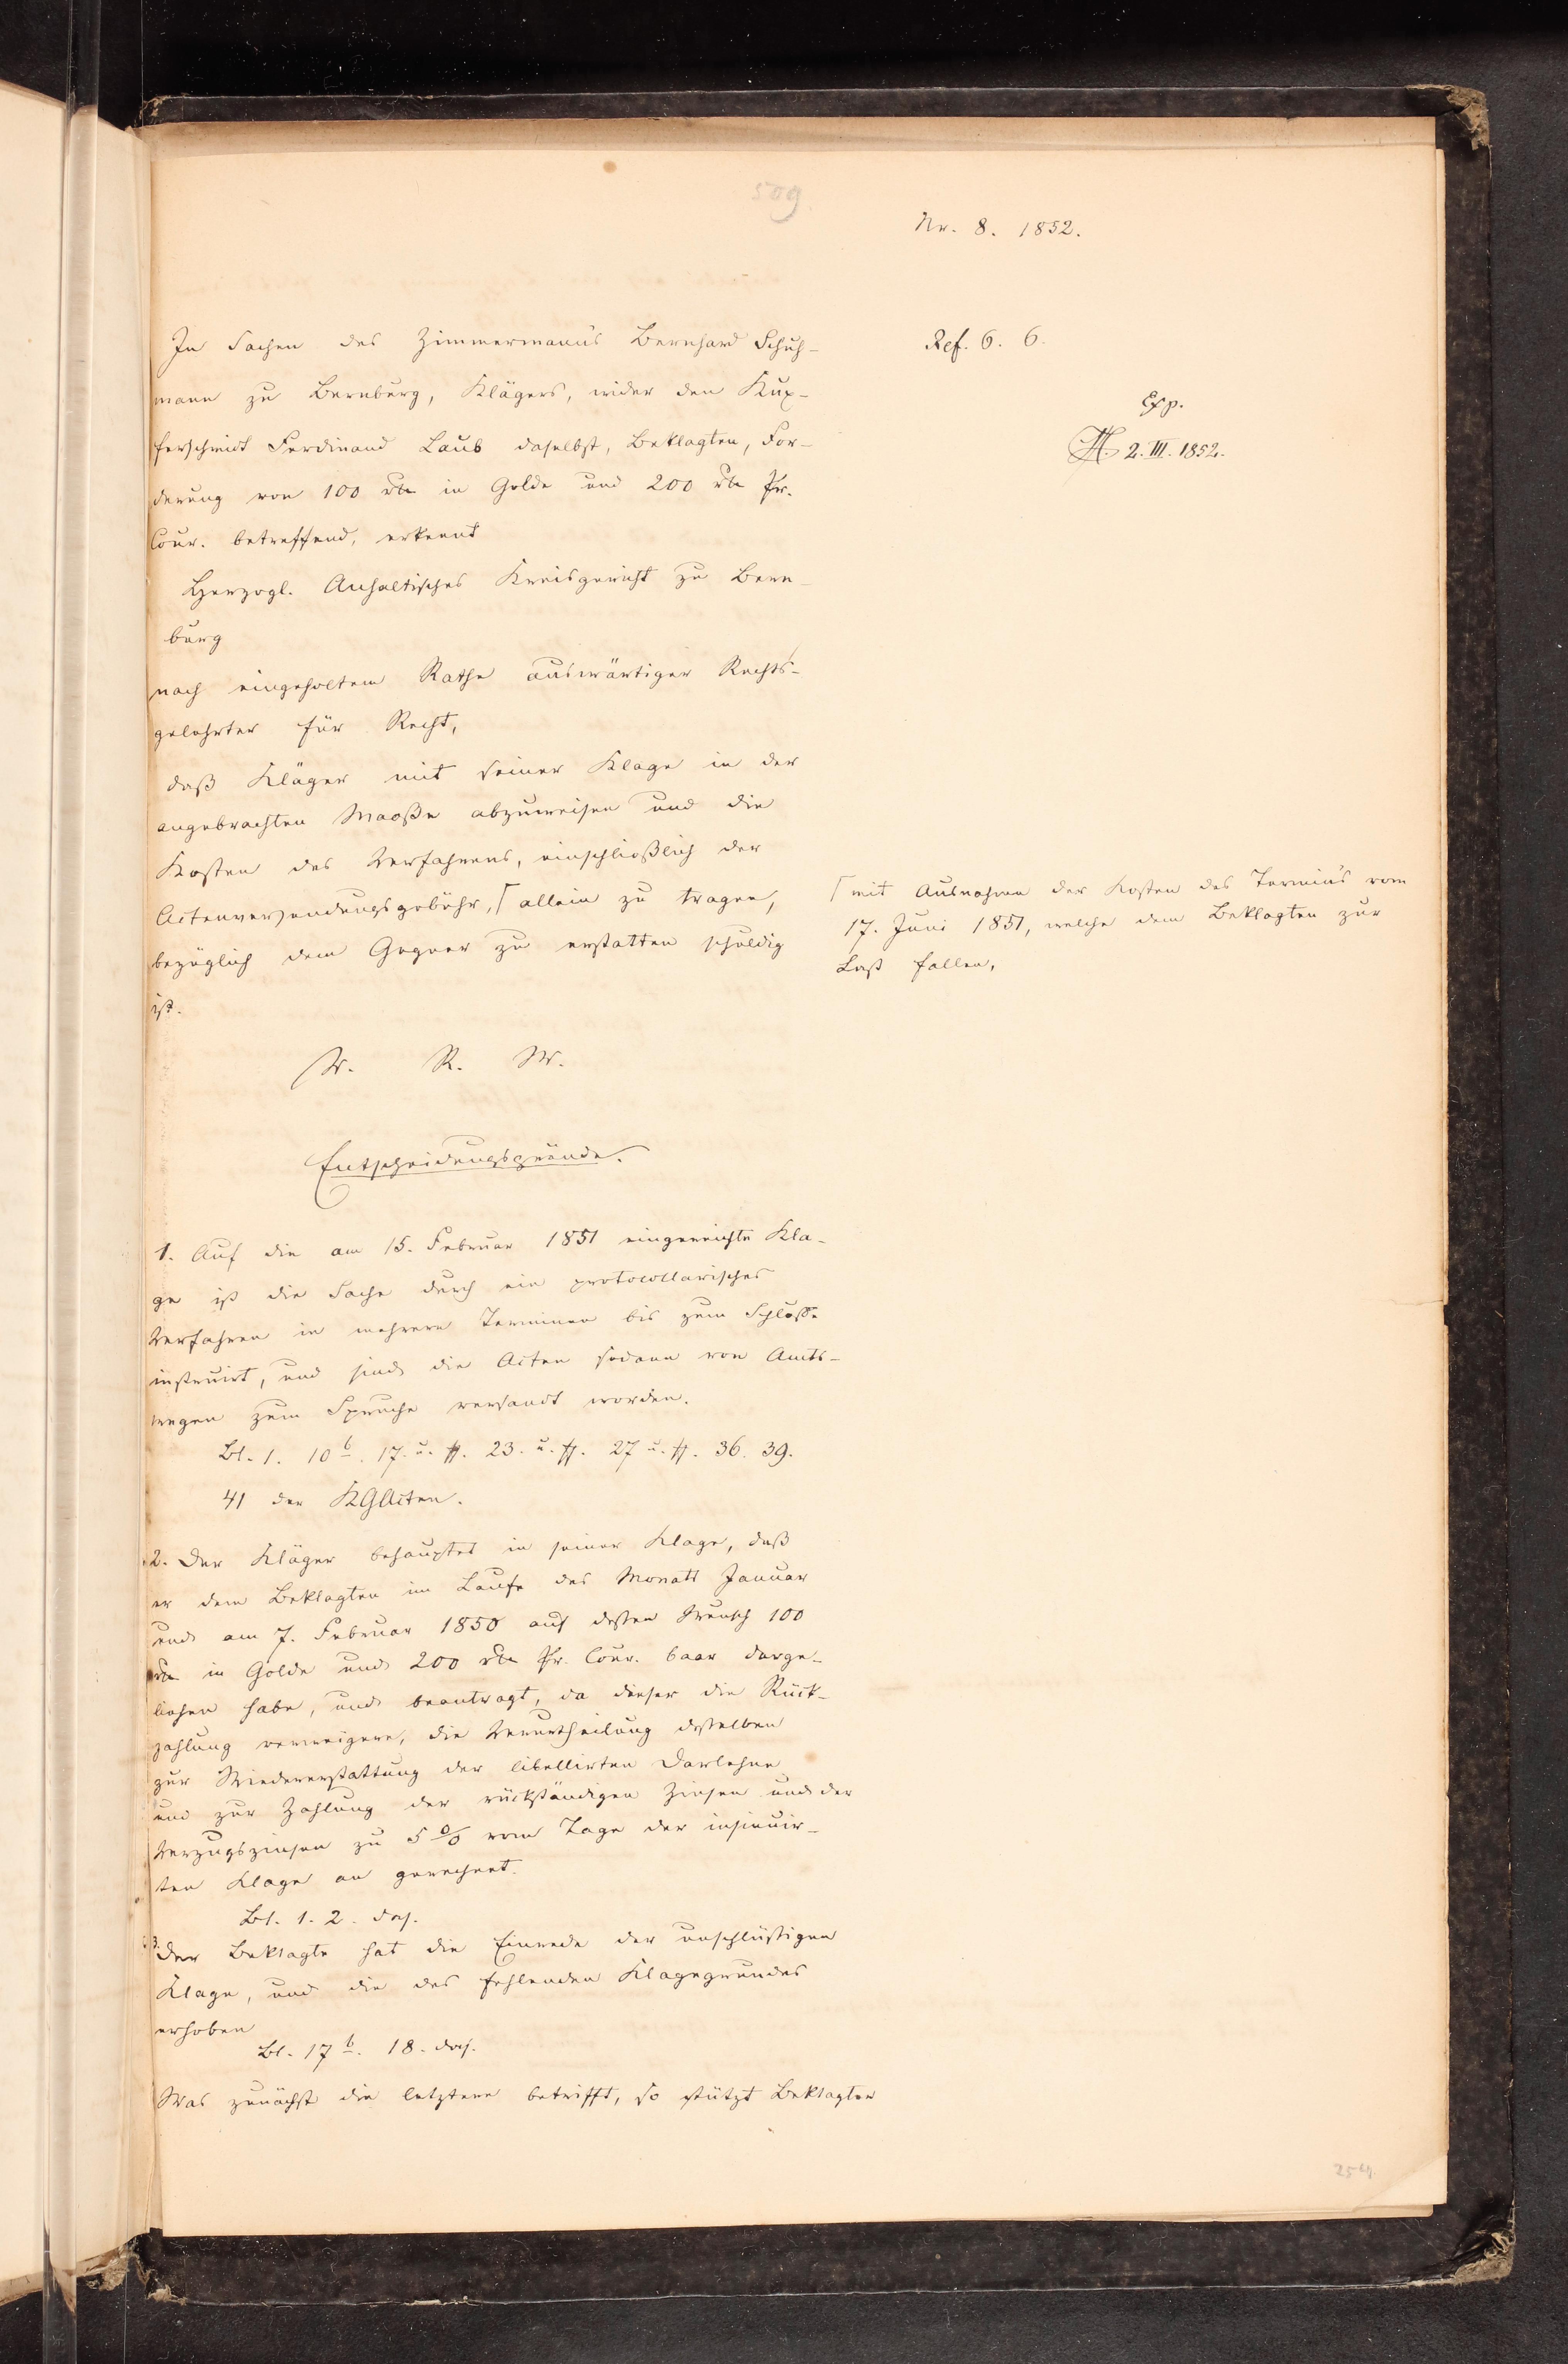 509
Nr. 8. 1852.
Ref. 6. 6.
Exp.
2. III. 1852.
In Sachen des Zimmermanns Bernhard Schuh-
mann zu Bernburg, Klägers, wider den Kup-
ferschmidt Ferdinand Laub daselbst, Beklagten, For-
derung von 100 rth in Golde und 200 rth Pr.
Cour. betreffend, erkennt
Herzogl. Anhaltisches Kreisgericht zu Bern-
burg
nach eingeholtem Rathe auswärtiger Rechts-
gelehrter für Recht,
daß Kläger mit seiner Klage in der
angebrachten Maaße abzuweisen und die
Kosten des Verfahrens, einschließlich der
Actenversendungsgebühr, ⌈ allein zu tragen,
bezüglich dem Gegner zu erstatten schuldig
ist.
⌈ mit Ausnahme der Kosten des Termins vom
17. Juni 1851, welche dem Beklagten zur
Last fallen,
V. R. W.
Entscheidungsgründe.
1. Auf die am 15. Februar 1851 eingereichte Kla-
ge ist die Sache durch ein protocollarisches
Verfahren in mehrern Terminen bis zum Schlusse
instruirt, und sind die Acten sodann von Amts-
wegen zum Spruche versandt worden.
Bl. 1. 10 b. 17. u. ff. 23. u. ff. 27 u. ff. 36. 39.
41 der KGActen.
2. Der Kläger behauptet in seiner Klage, daß
er dem Beklagten im Laufe des Monats Januar
und am 7. Februar 1850 auf dessen Wunsch 100
rth in Golde und 200 rth Pr. Cour. baar darge-
liehen habe, und beantragt, da dieser die Rück-
zahlung verweigere, die Verurtheilung desselben
zur Wiedererstattung der libellirten Darlehne
und zur Zahlung der rückständigen Zinsen und der
Verzugszinsen zu 5 % vom Tage der insinuir-
ten Klage an gerechnet.
Bl. 1. 2. das.
3. Der Beklagte hat die Einrede der unschlüssigen
Klage, und die des fehlenden Klagegrundes
erhoben
Bl. 17 b. 18. das.
Was zunächst die letztere betrifft, so stützt Beklagter
254